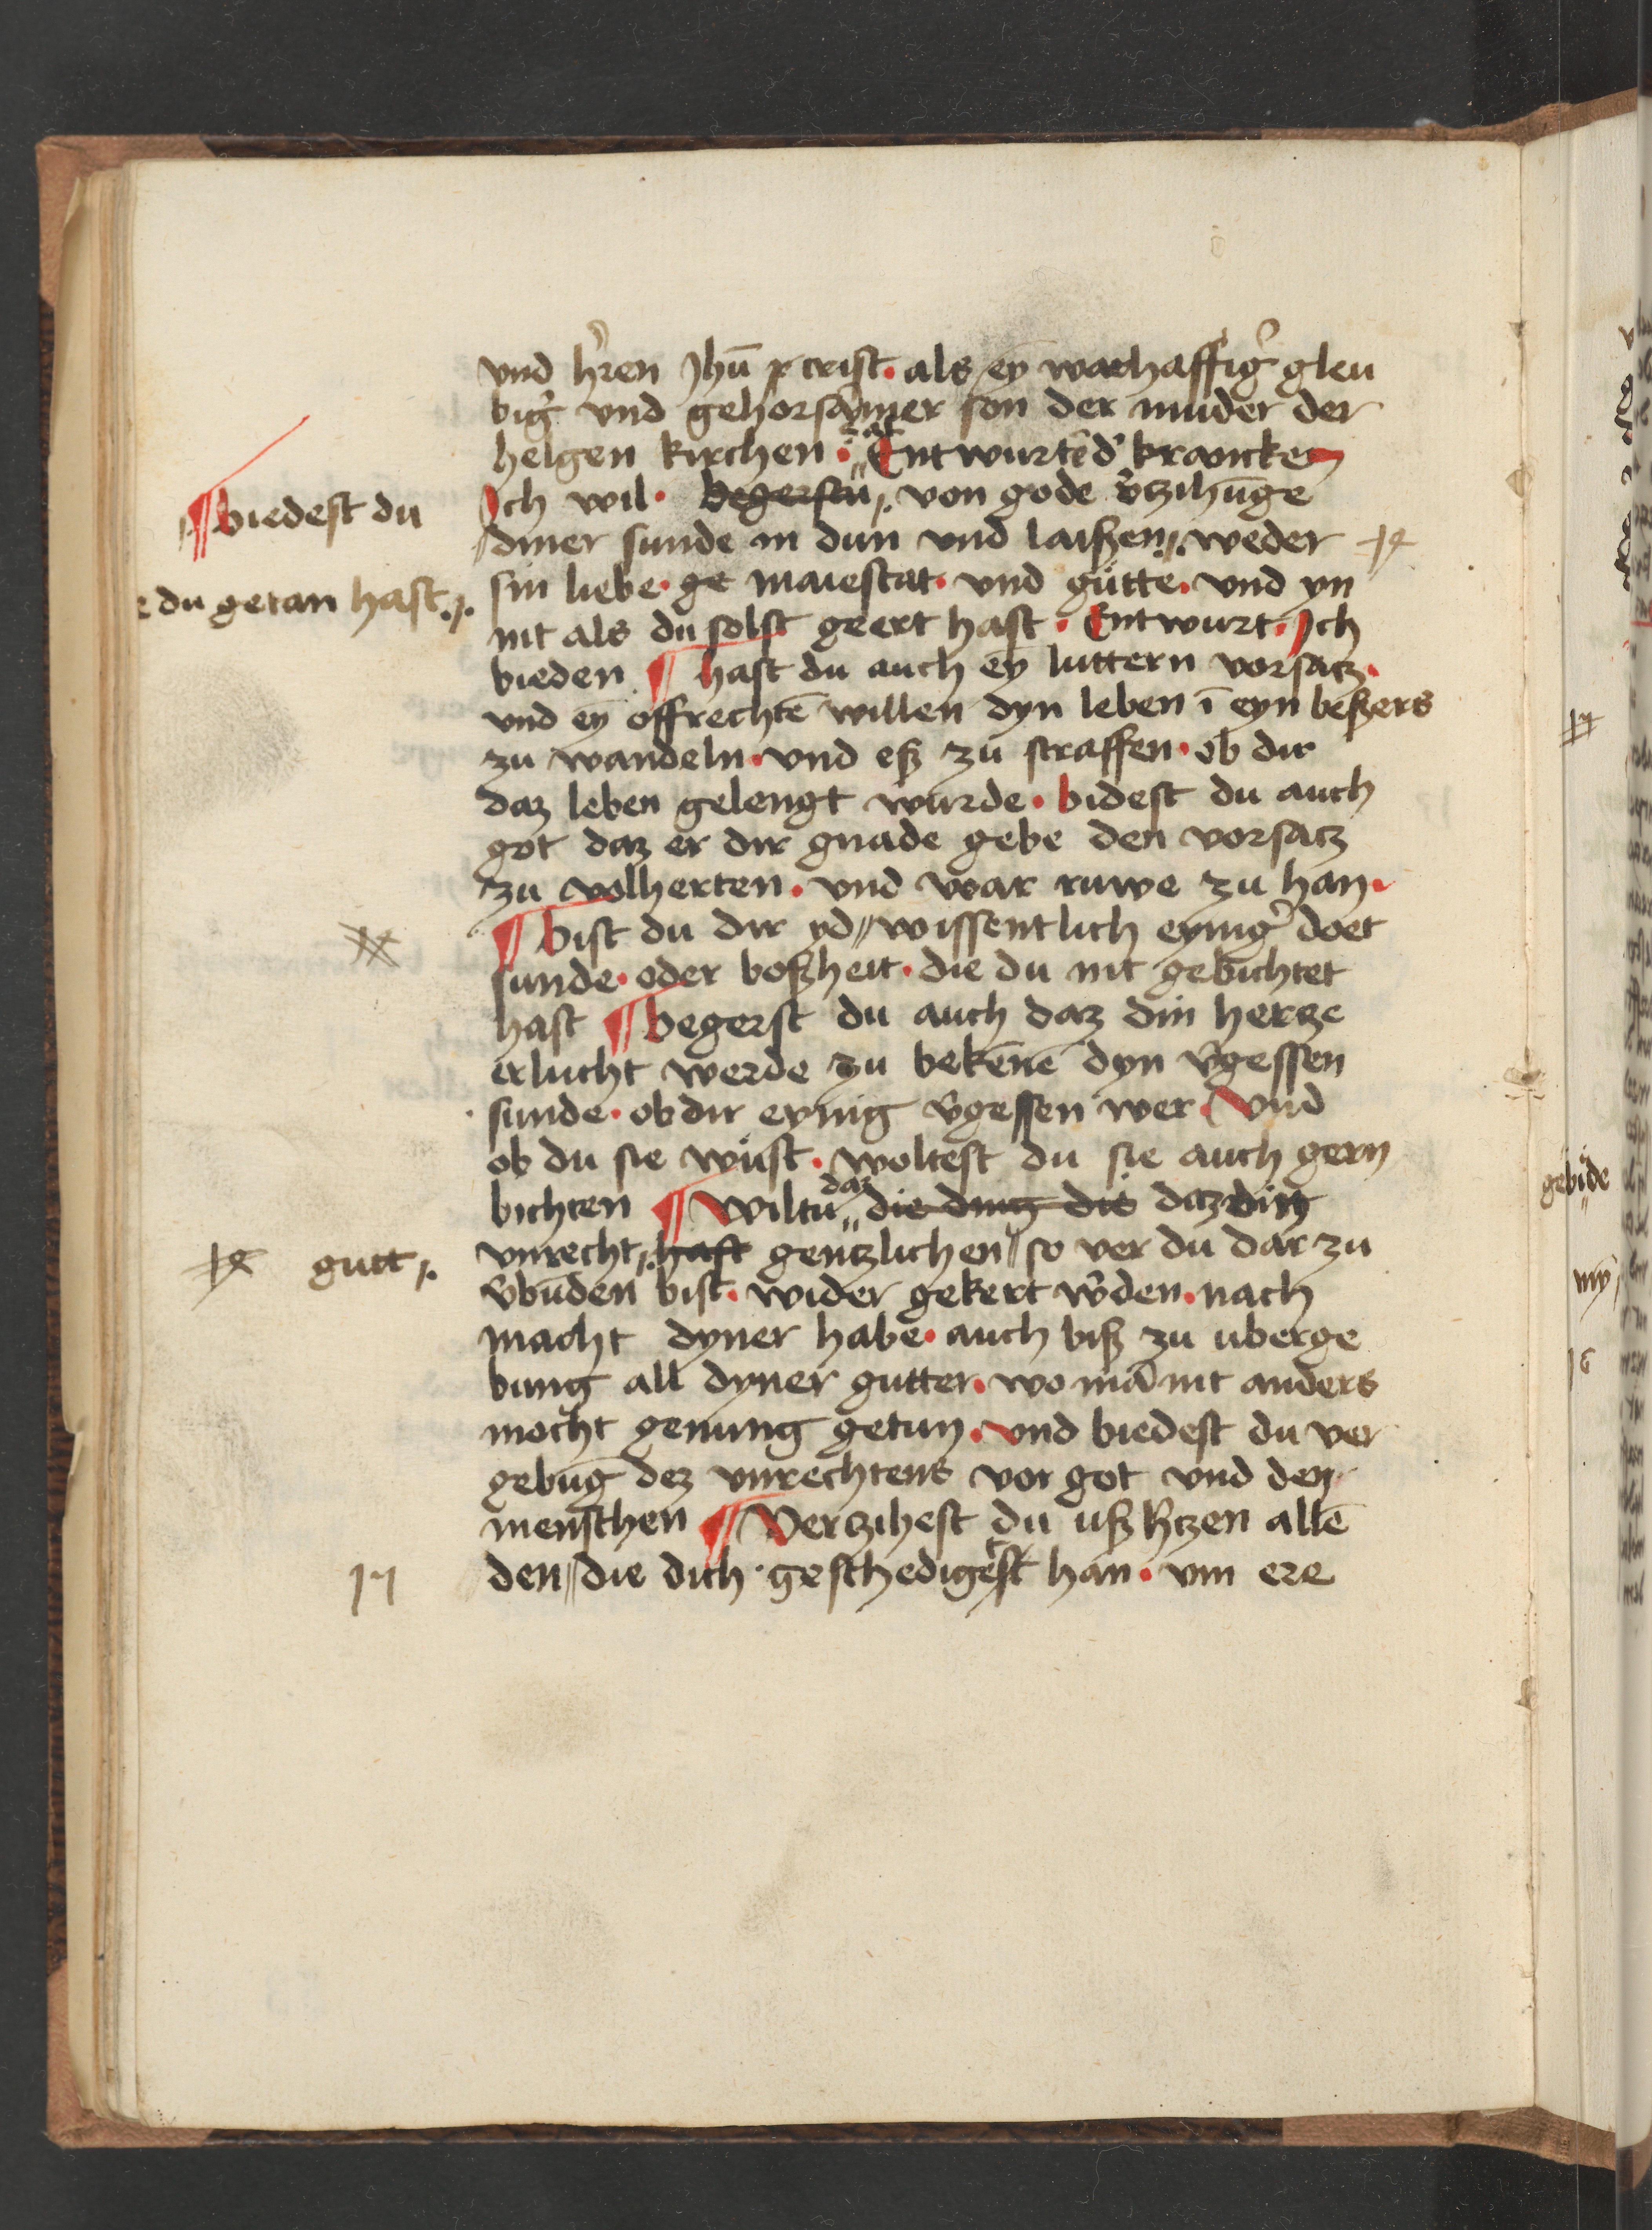 vnd hẽren Jhũ x crist · als eÿ warhafftig̃ gleu
big̃ vnd gehorsãmer son der muder der
helgen kirchen · Entwurt d̃ krancken
¶ biedest du
Ich wil · begerstu von gode ṽtzihũge
diner sunde in dun vnd laißen weder
e du getan hast
sin liebe · ge maiestat · vnd gütte · vnd yn
nit als du solst geert hast · Entwurt · Ich
bieden ¶ hast du auch eÿ luttern vorsatz ·
vnd eÿ offrechtẽ willen dyn leben ĩ eyn beßers
zu wandeln · vnd eß zu straffen · ob dir
daz leben gelengt wurde · bidest du auch
got daz er dir gnade gebe den vorsatz
zu volherten · vnd war ruwe zu han ·
¶ bist du dir yd wissentlich eynig̃ doet
sunde · oder boßheit · die du nit gebichtet
hast ¶ begerst du auch daz din hertze
erlucht werde zu bekẽnẽ dyn ṽgessen
sunde · ob dir eynig ṽgessen wer · Vnd
ob du sie wüst · woltest du sie auch gern
daz
bichten ¶ Wiltu die ding die daz din
gutt
vnrecht hast gentzlichen so ver du dar zu
ṽbũden bist · wider gekert w̃den · nach
macht dyner habe · auch biß zu uberge
bung all dyner gutter · wo mã nit anders
mocht genung getun · vnd biedest du ver
gebũg dez vnrechtens vor got vnd den
menschen ¶ Vertzihest du uß h̃tzen allẽ
den die dich geschediget han · vm ere
gebide